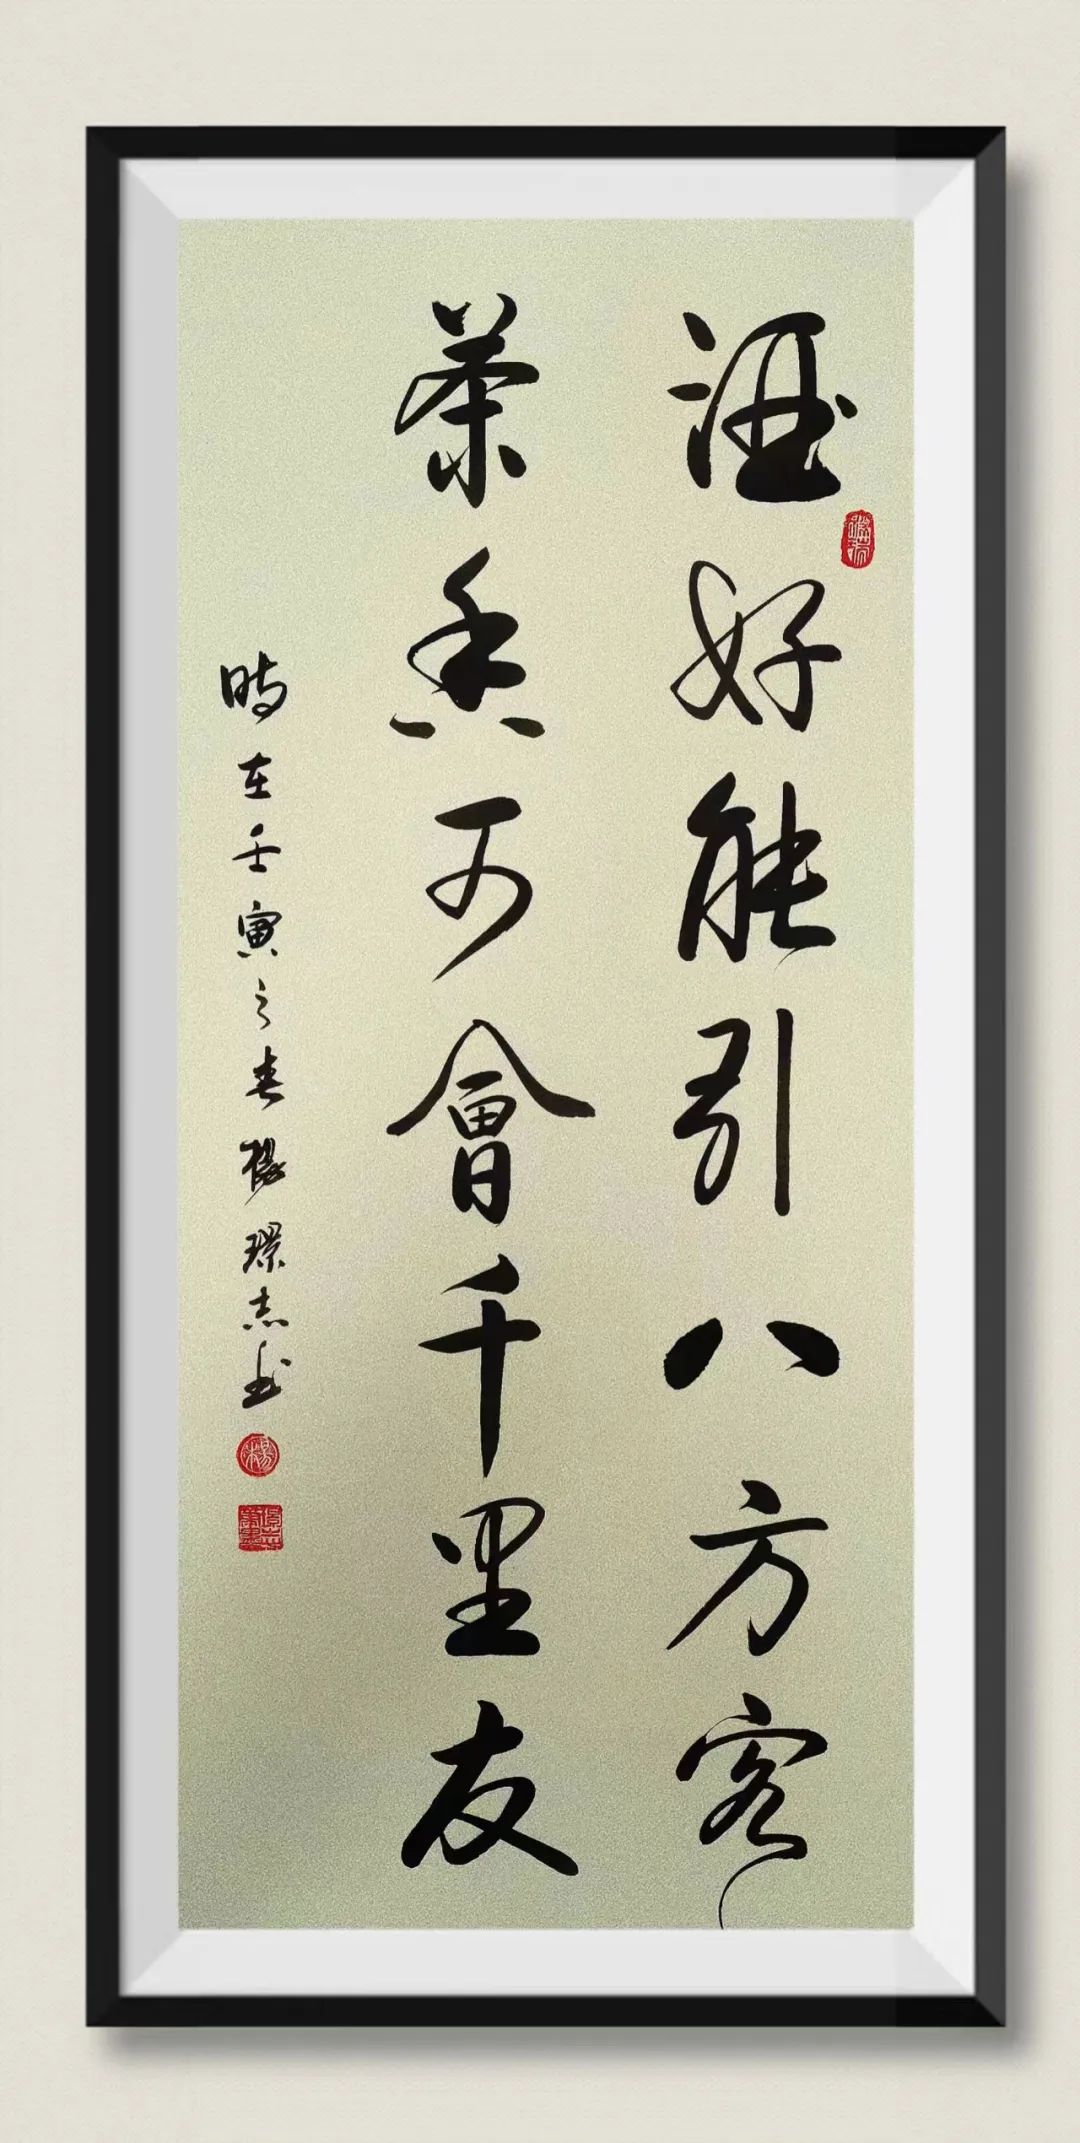 酒好能引八方客
茶香可會千里友
時在壬寅之春楊環志書